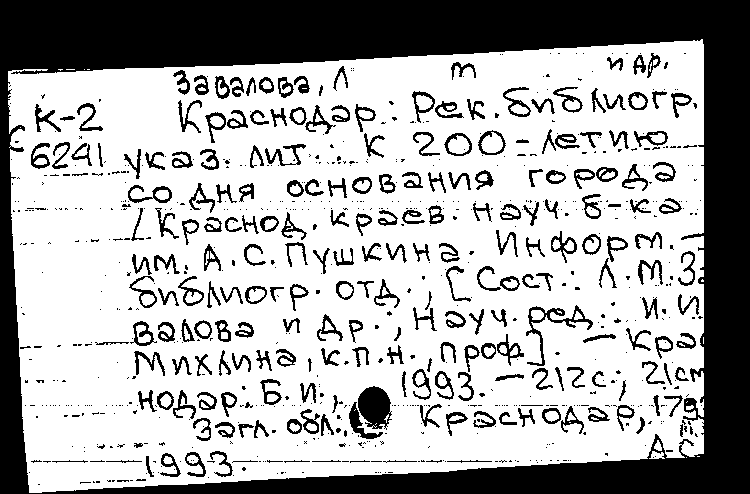 Завалова, Л м и др.
К-2 Краснодар: Рек. библиогр.
С 6241 указ. лит. : К 200-летию
со дня основания города
/ Краснод. краев. науч. б-ка
им. А.С. Пушкина. Информ. -
библиогр. отд.; [Сост.: Л.М. За
валова и др.; Науч. ред.: И.И
Михлина, к.п.н., проф]. — Крас
нодар: Б.и., 1993. — 212с.; 21см
Загл. обл.: Краснодар, 179
1993. А-С